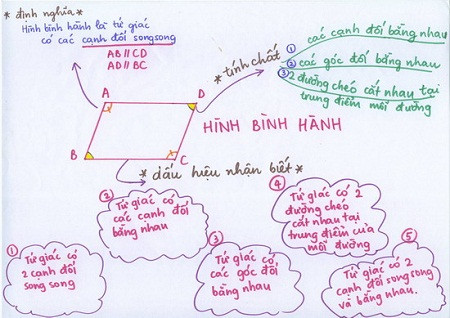 * định nghĩa *
Hình bình hành là tứ giác
có các cạnh đối song song
AB // CD
AD // BC
* tính chất
① các cạnh đối bằng nhau
② các góc đối bằng nhau
③ 2 đường chéo cắt nhau tại
trung điểm mỗi đường
A
D
B
C
HÌNH BÌNH HÀNH
* dấu hiệu nhận biết *
①
Tứ giác có
2 cạnh đối
song song
②
Tứ giác có
các cạnh đối
bằng nhau
③
Tứ giác có
các góc đối
bằng nhau
④
Tứ giác có 2
đường chéo
cắt nhau tại
trung điểm của
mỗi đường
⑤
Tứ giác có 2
cạnh đối song song
và bằng nhau.